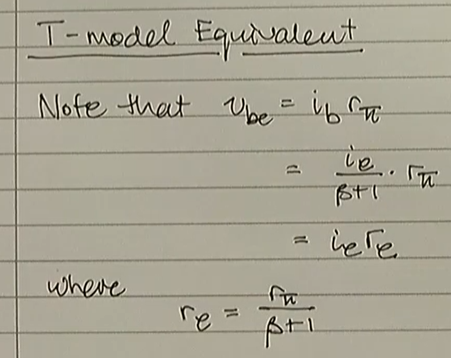 T-model Equivalent
Note that v_be = i_b r_π
= i_e/(β+1) · r_π
= i_e r_e
where
r_e = r_π/(β+1)